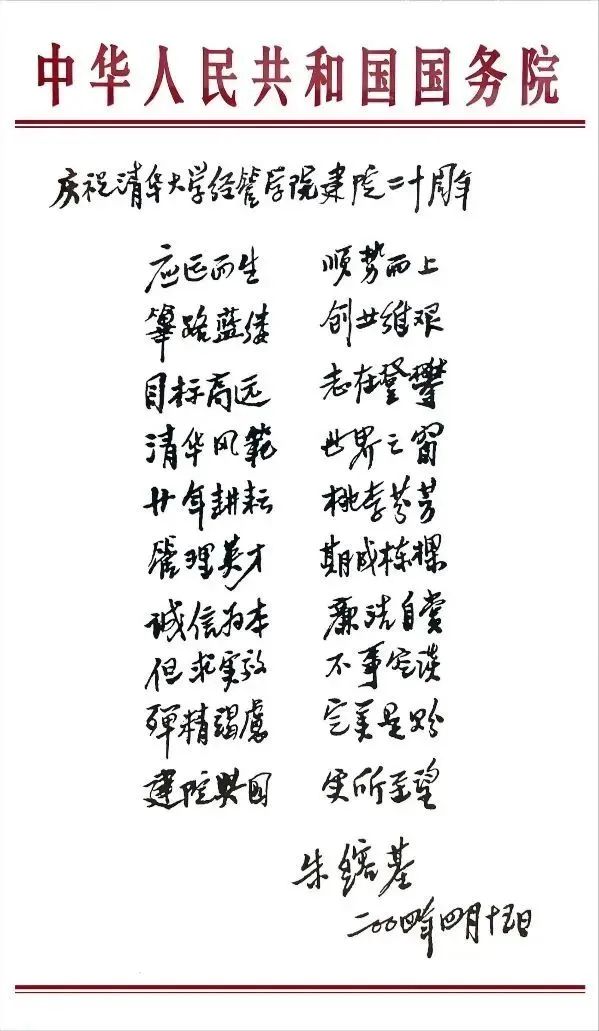 中华人民共和国国务院
庆祝清华大学经管学院建院二十周年
应运而生 顺势而上
筚路蓝缕 创业维艰
目标高远 志在登攀
清华风範 世界之窗
廿年耕耘 桃李芬芳
管理英才 期成栋樑
诚信为本 廉洁自赏
但求实效 不事空谈
殚精竭虑 完美是务
建院兴国 实所至望
朱镕基
二〇〇四年四月十五日